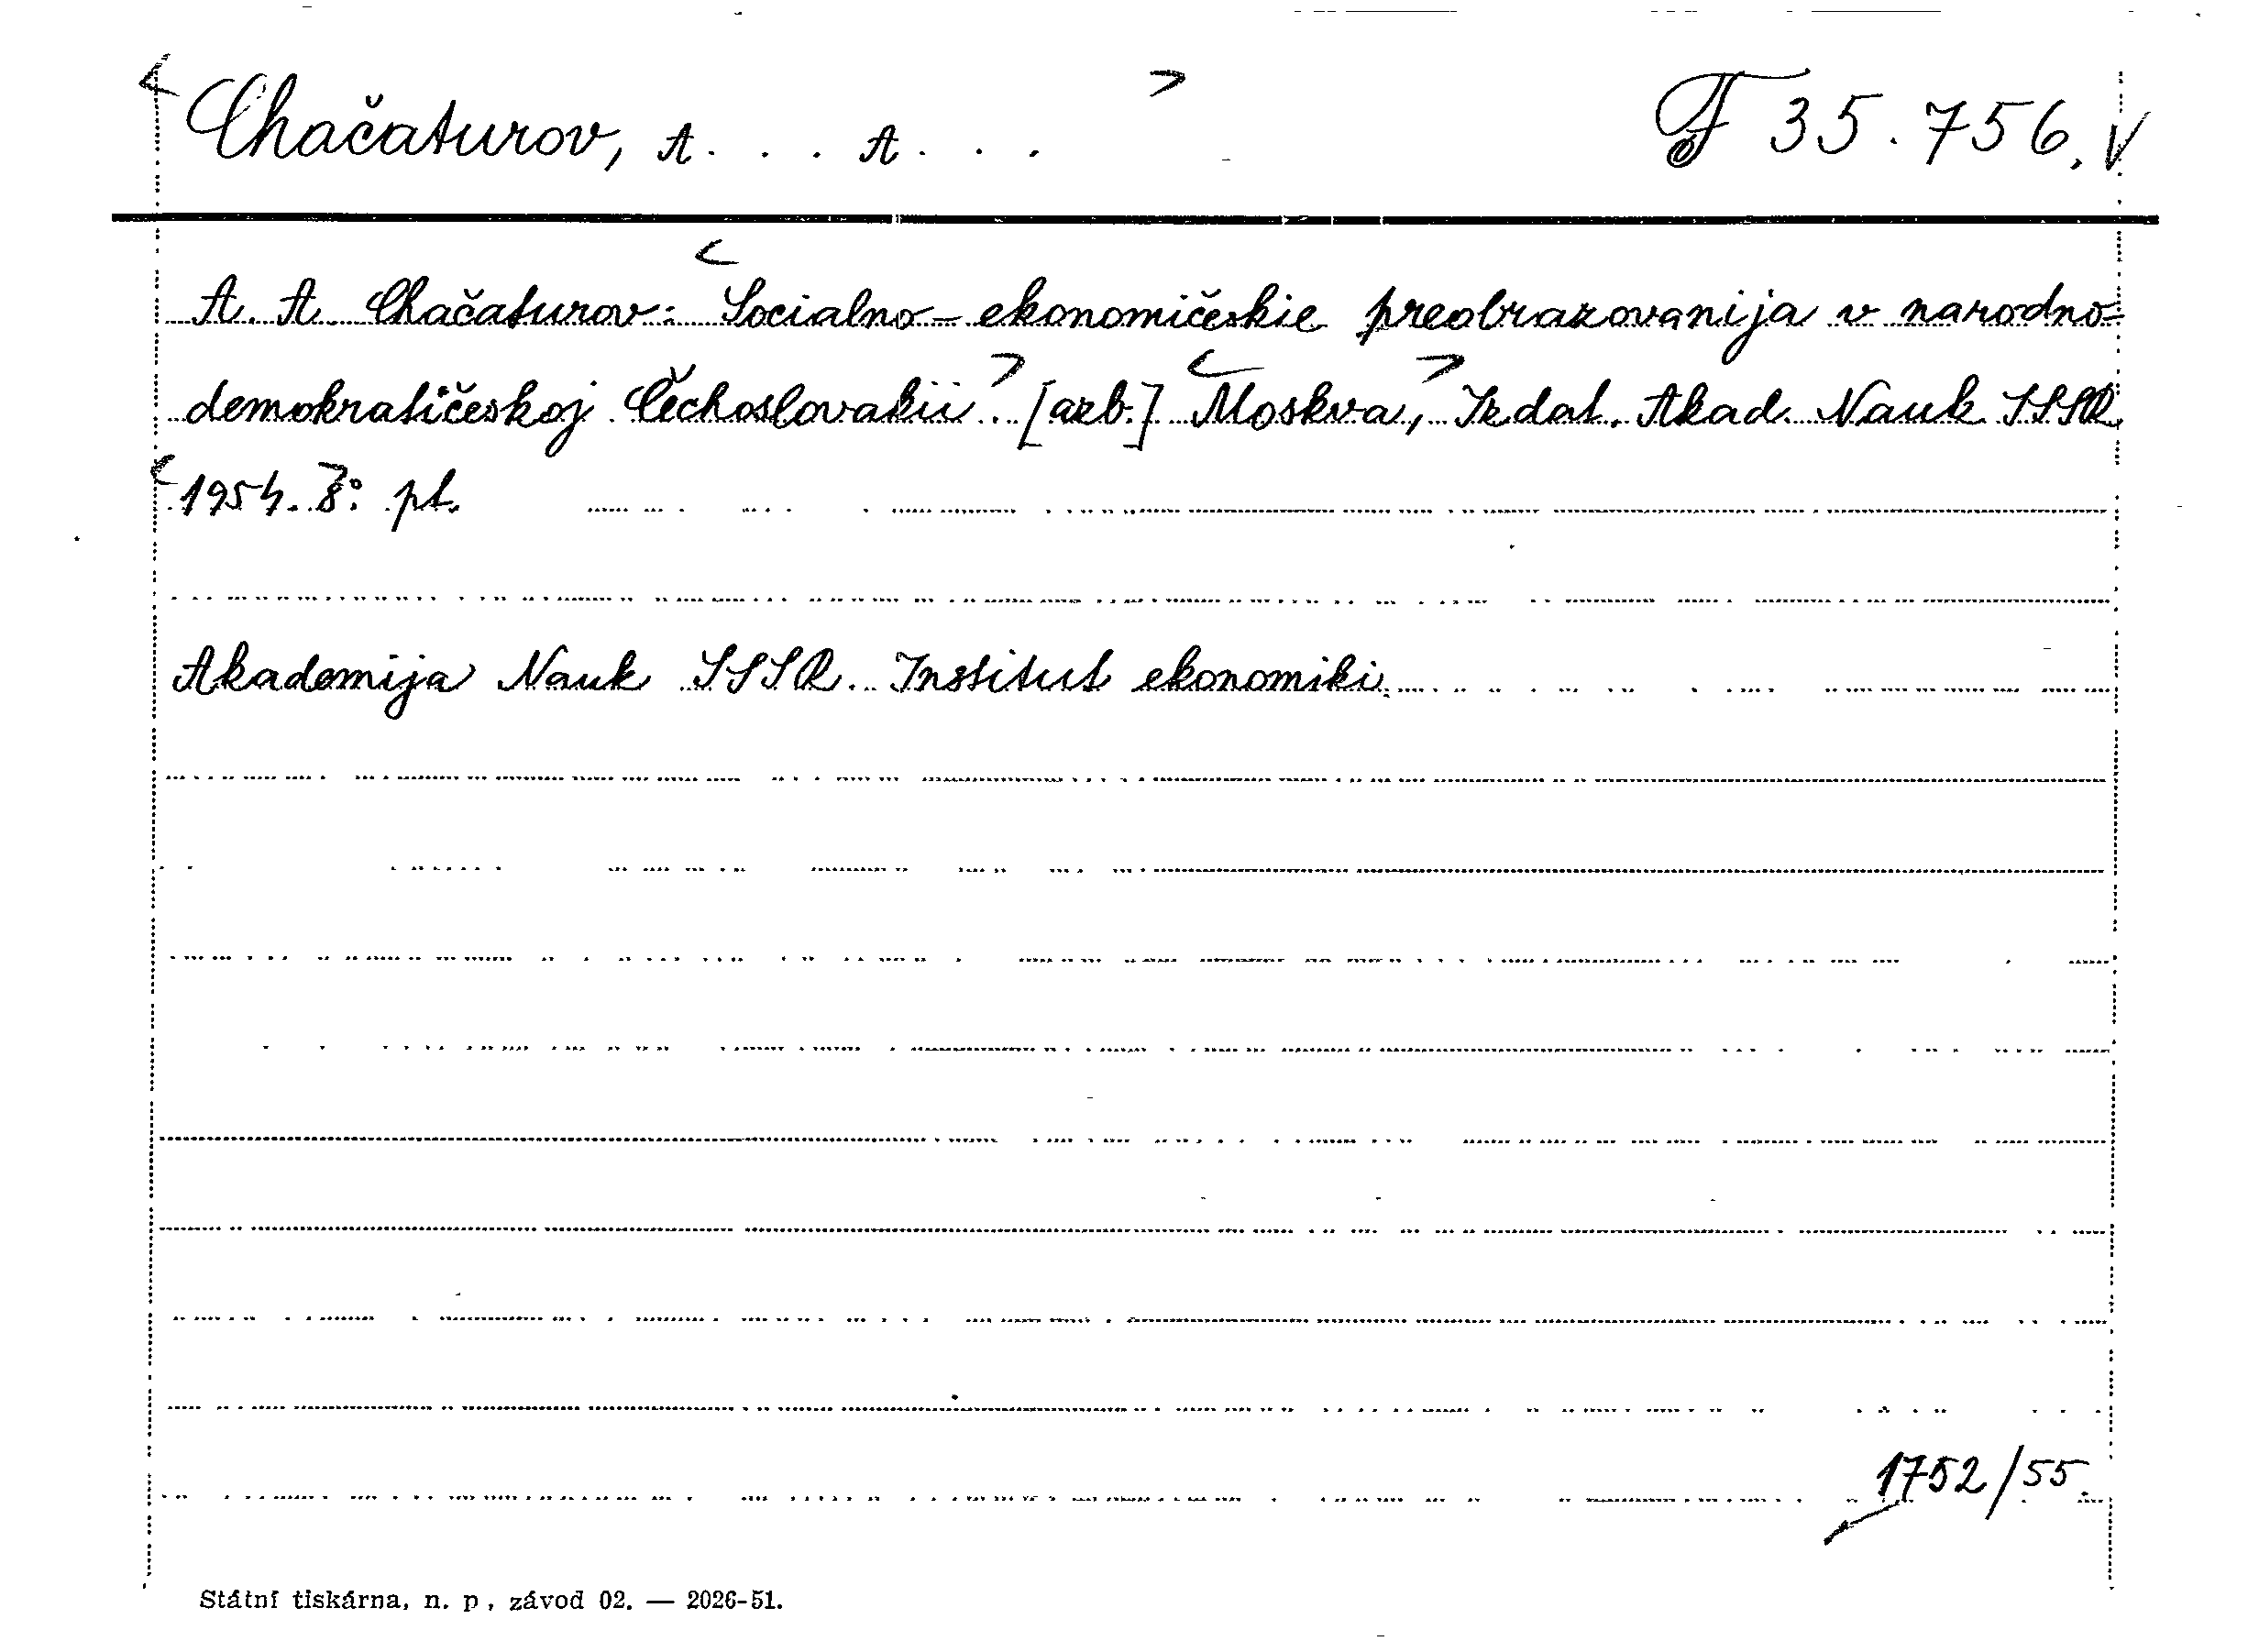 < Chačaturov, A. . . A. . . > F 35.756. V
A. A. Chačaturov: < Socialno-ekonomičeskie preobrazovanija v narodno-
demokratičeskoj Čechoslovakii > . [azb.] < Moskva, > Izdat. Akad. Nauk SSSR
< 1954. > 8°: pt.
Akademija Nauk SSSR. Institut ekonomiki.
1752/55.
Státní tiskárna, n. p., závod 02. — 2026-51.